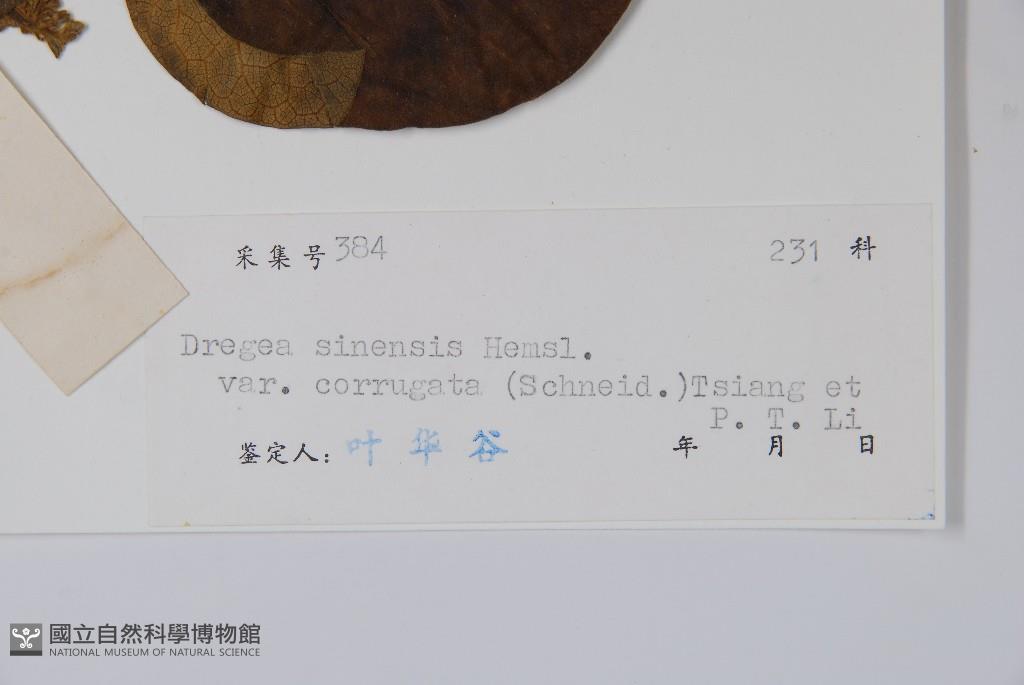 采集号384 231 科
Dregea sinensis Hemsl.
var. corrugata (Schneid.)Tsiang et
P. T. Li
鉴定人: 叶华谷 年 月 日
國立自然科學博物館
NATIONAL MUSEUM OF NATURAL SCIENCE